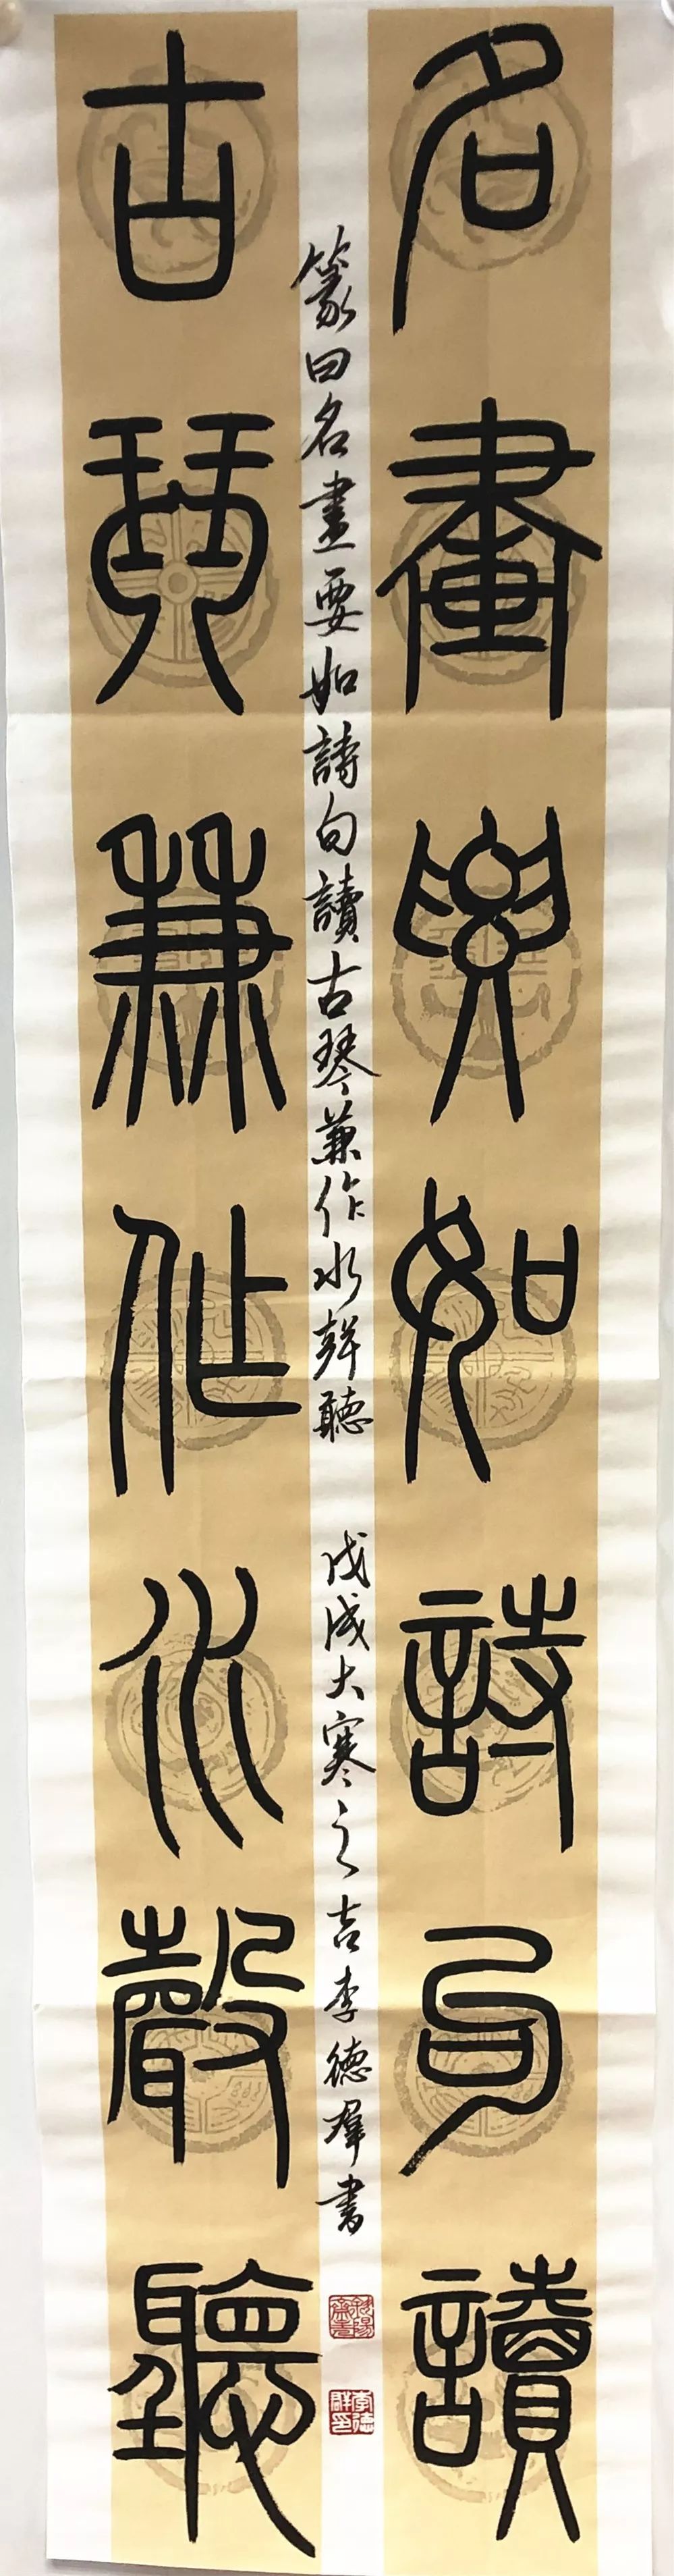 名畫要如詩句讀
古琴兼作水聲聽
篆曰名畫要如詩句讀古琴兼作水聲聽
戊戌大寒之吉李德群書
李德群印